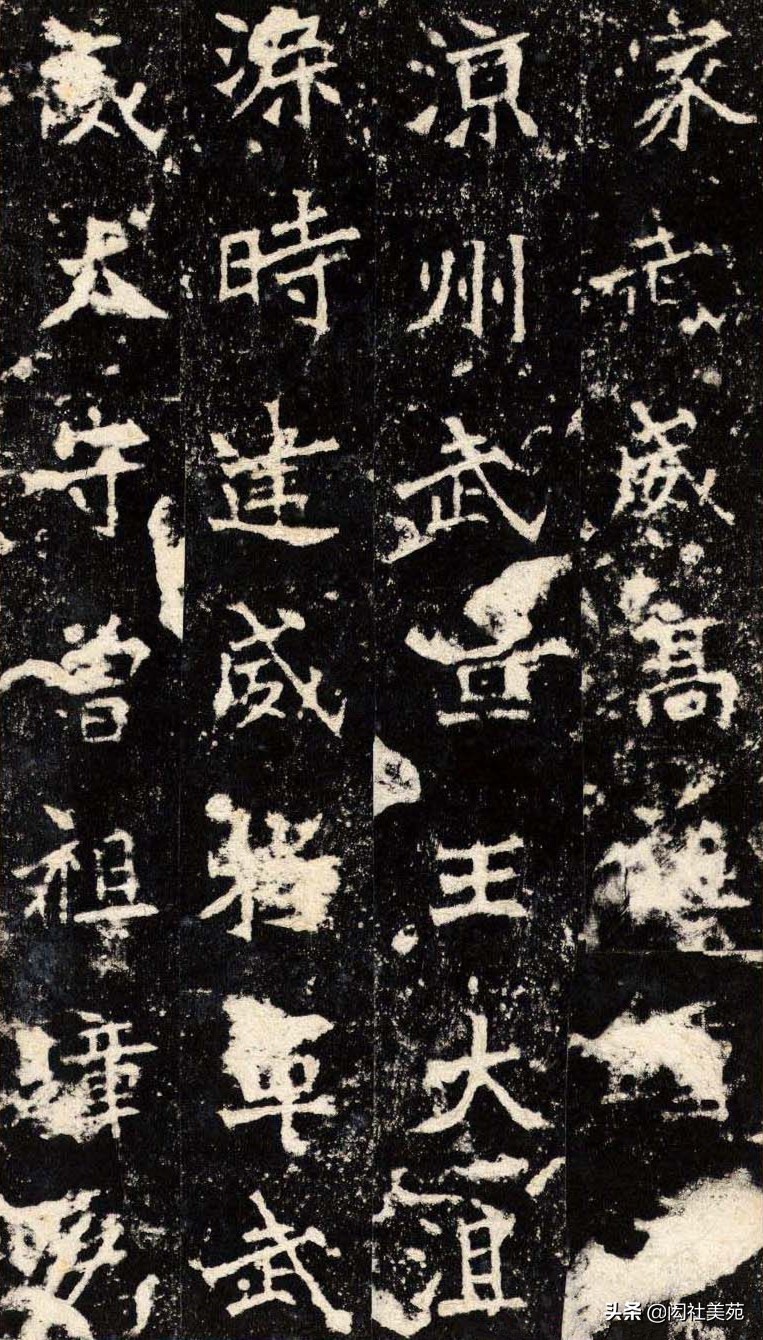 家武威高祖
涼州武宣王大沮
渠時建威將軍武
威太守曾祖璋
头条 @闳社美苑